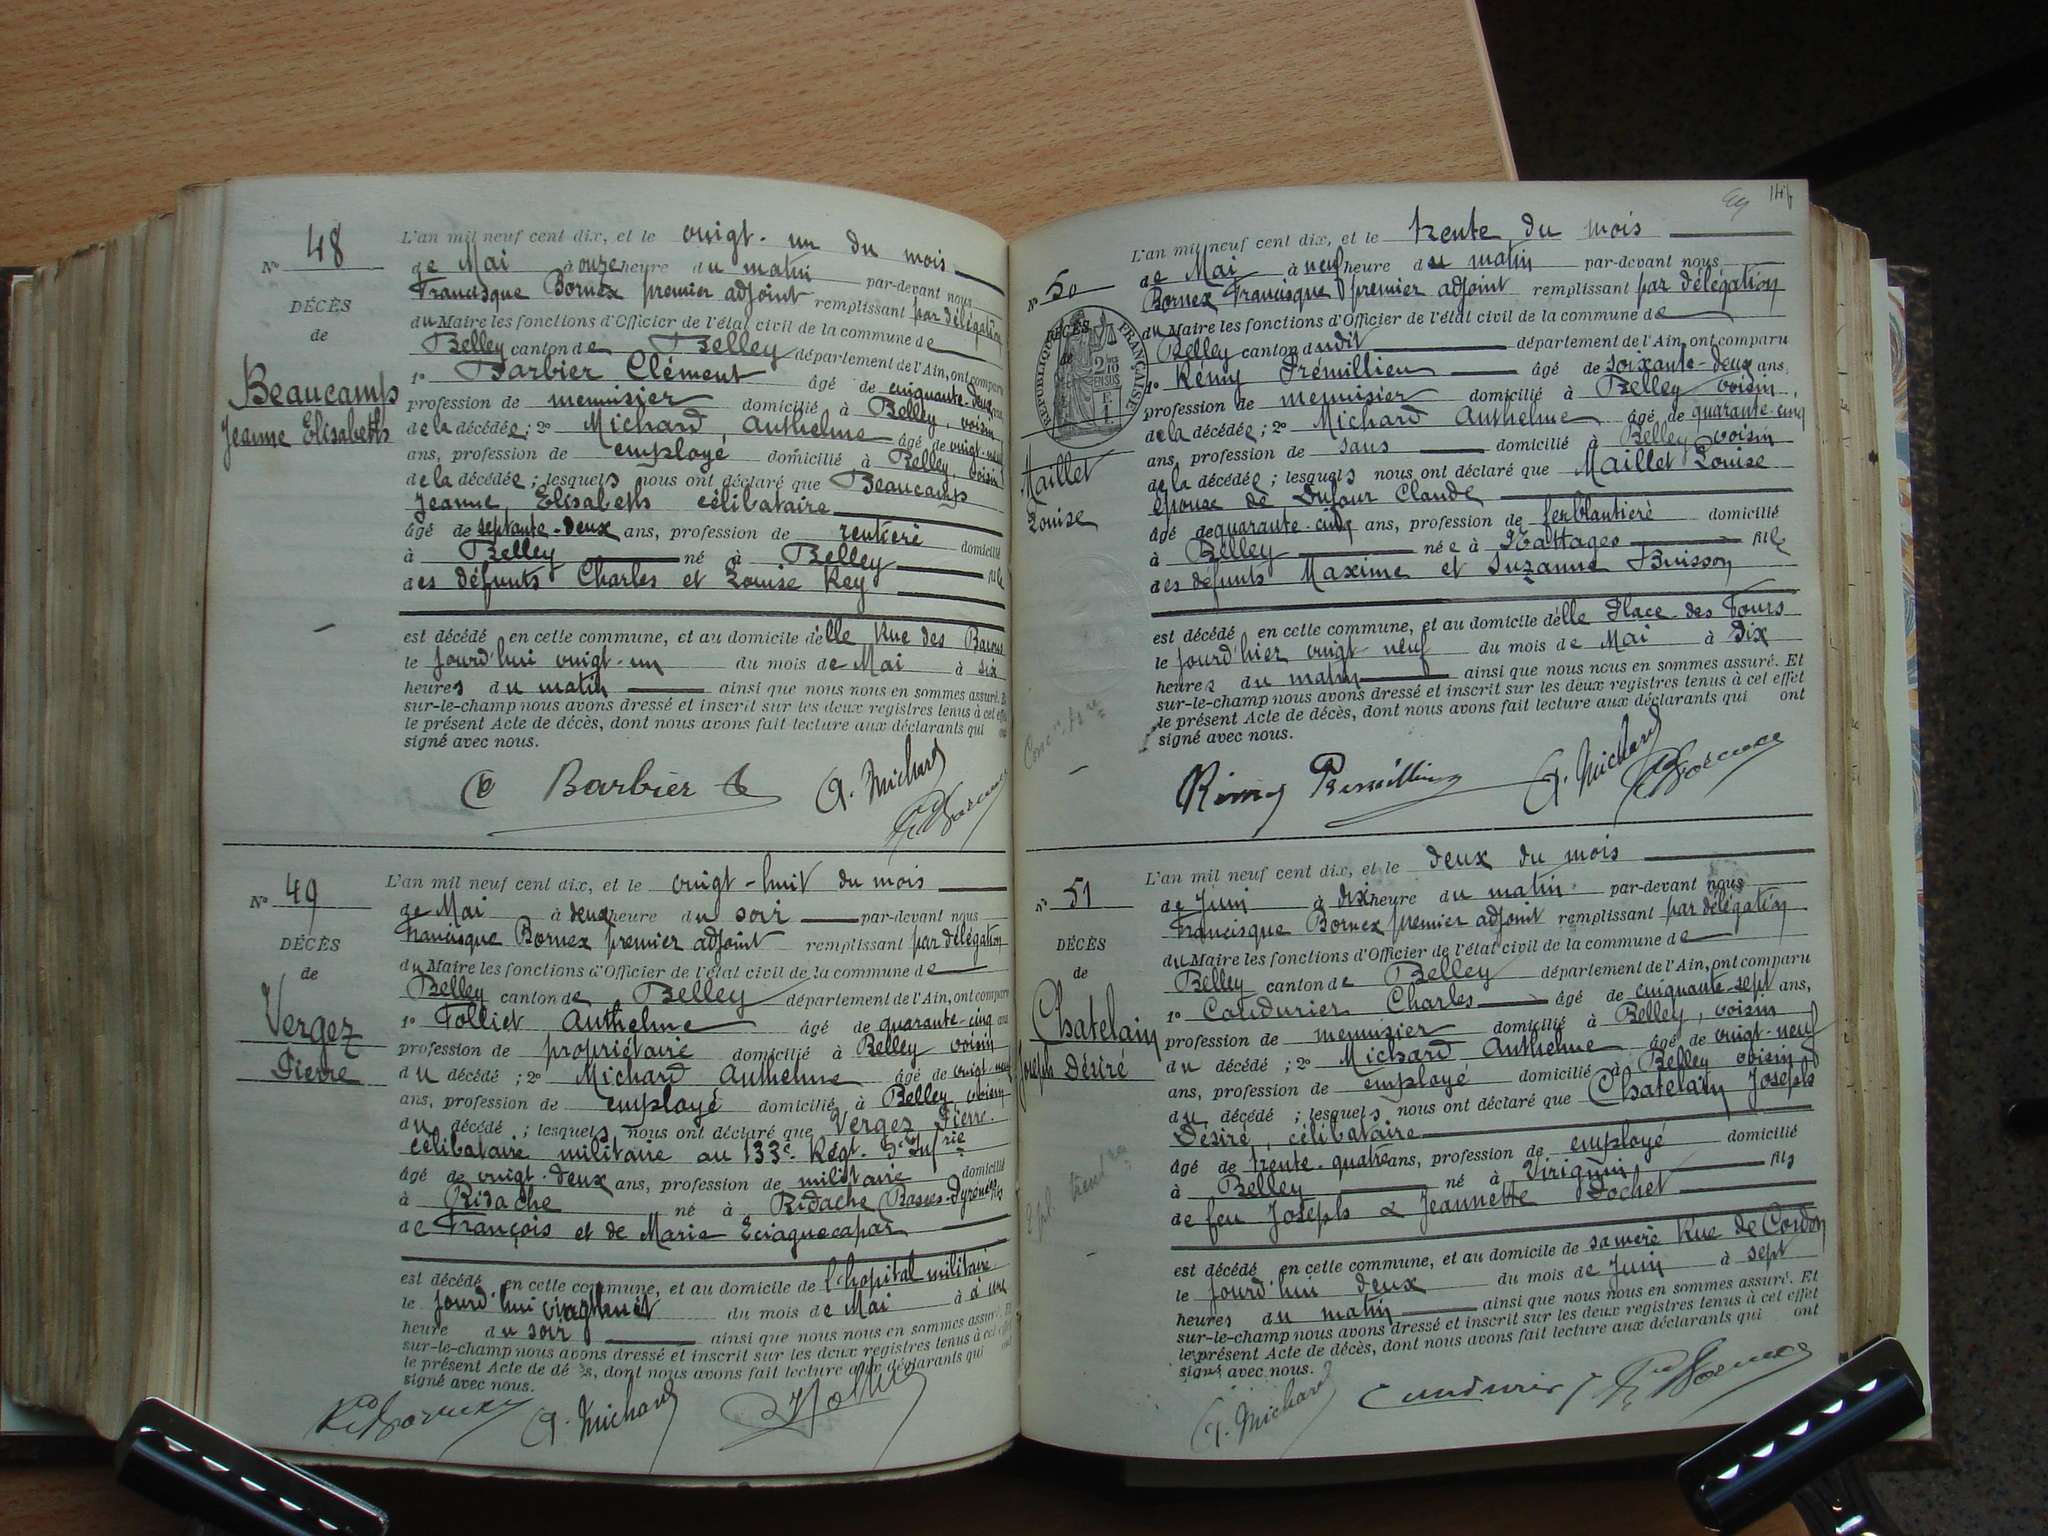 N° 48
DÉCÈS
de
Beaucamp
Jeanne Elisabeth
L'an mil neuf cent dix, et le vingt-un du mois
de Mai à onze heure du matin par-devant nous
Francisque Bornex premier adjoint remplissant par délégation
du Maire les fonctions d'Officier de l'état civil de la commune de
Belley canton de Belley département de l'Ain, ont comparu
1° Barbier Clément âgé de cinquante-deux ans,
profession de menuisier domicilié à Belley, voisin
de la décédée; 2° Michard Anthelme âgé de vingt-neuf
ans, profession de employé domicilié à Belley, voisin
de la décédée; lesquels nous ont déclaré que Beaucamp
Jeanne Elisabeth célibataire
âgé de septante-deux ans, profession de rentière domicilié
à Belley né à Belley fille
des défunts Charles et Louise Rey
est décédé en cette commune, et au domicile d'elle Rue des Barons
le jourd'hui vingt-un du mois de Mai à six
heures du matin ainsi que nous nous en sommes assuré. Et
sur-le-champ nous avons dressé et inscrit sur les deux registres tenus à cet effet
le présent Acte de décès, dont nous avons fait lecture aux déclarants qui ont
signé avec nous.
C Barbier A. Michard
Fr Bornex
N° 49
DÉCÈS
de
Vergez
Pierre
L'an mil neuf cent dix, et le vingt-huit du mois
de Mai à deux heure du soir par-devant nous
Francisque Bornex premier adjoint remplissant par délégation
du Maire les fonctions d'Officier de l'état civil de la commune de
Belley canton de Belley département de l'Ain, ont comparu
1° Folliet Anthelme âgé de quarante-cinq ans
profession de propriétaire domicilié à Belley voisin
du décédé; 2° Michard Anthelme âgé de vingt-neuf
ans, profession de employé domicilié à Belley, voisin
du décédé; lesquels nous ont déclaré que Vergez Pierre
célibataire militaire au 133e Régt d'Infrie
âgé de vingt-deux ans, profession de militaire domicilié
à Bidache né à Bidache (Basses-Pyrénées) fils
de François et de Marie
est décédé en cette commune, et au domicile de l'hopital militaire
le jourd'hui vingt huit du mois de Mai à une
heure du soir ainsi que nous nous en sommes assuré. Et
sur-le-champ nous avons dressé et inscrit sur les deux registres tenus à cet effet
le présent Acte de décès, dont nous avons fait lecture aux déclarants qui ont
signé avec nous.
Fr Bornex A. Michard
49
N° 50
DÉCÈS
de
RÉPUBLIQUE FRANÇAISE
Maillet
Louise
L'an mil neuf cent dix, et le trente du mois
de Mai à neuf heure du matin par-devant nous
Bornex Francisque premier adjoint remplissant par délégation
du Maire les fonctions d'Officier de l'état civil de la commune de
Belley canton dudit département de l'Ain, ont comparu
1° Rémy Prémillieu âgé de soixante-deux ans,
profession de menuisier domicilié à Belley voisin
de la décédée; 2° Michard Anthelme âgé de quarante-cinq
ans, profession de sans domicilié à Belley voisin
de la décédée; lesquels nous ont déclaré que Maillet Louise
épouse de Dufour Claude
âgé de quarante-cinq ans, profession de ferblantière domicilié
à Belley née à Nattages fille
des défunts Maxime et Suzanne Buisson
est décédé en cette commune, et au domicile d'elle Place des Fours
le jourd'hier vingt-neuf du mois de Mai à dix
heures du matin ainsi que nous nous en sommes assuré. Et
sur-le-champ nous avons dressé et inscrit sur les deux registres tenus à cet effet
le présent Acte de décès, dont nous avons fait lecture aux déclarants qui ont
signé avec nous.
Rémy Prémillieu A. Michard
Fr Bornex
N° 51
DÉCÈS
de
Chatelain
Joseph Désiré
L'an mil neuf cent dix, et le deux du mois
de Juin à dix heure du matin par-devant nous
Francisque Bornex premier adjoint remplissant par délégation
du Maire les fonctions d'Officier de l'état civil de la commune de
Belley canton de Belley département de l'Ain, ont comparu
1° Caudurier Charles âgé de cinquante-sept ans,
profession de menuisier domicilié à Belley, voisin
du décédé; 2° Michard Anthelme âgé de vingt-neuf
ans, profession de employé domicilié à Belley voisin
du décédé; lesquels nous ont déclaré que Chatelain Joseph
Désiré, célibataire
âgé de trente-quatre ans, profession de employé domicilié
à Belley né à Virignin fils
de feu Joseph & Jeannette Pochet
est décédé en cette commune, et au domicile de sa mère Rue de Cordon
le jourd'hui deux du mois de Juin à sept
heures du matin ainsi que nous nous en sommes assuré. Et
sur-le-champ nous avons dressé et inscrit sur les deux registres tenus à cet effet
le présent Acte de décès, dont nous avons fait lecture aux déclarants qui ont
signé avec nous.
A. Michard Caudurier Fr Bornex